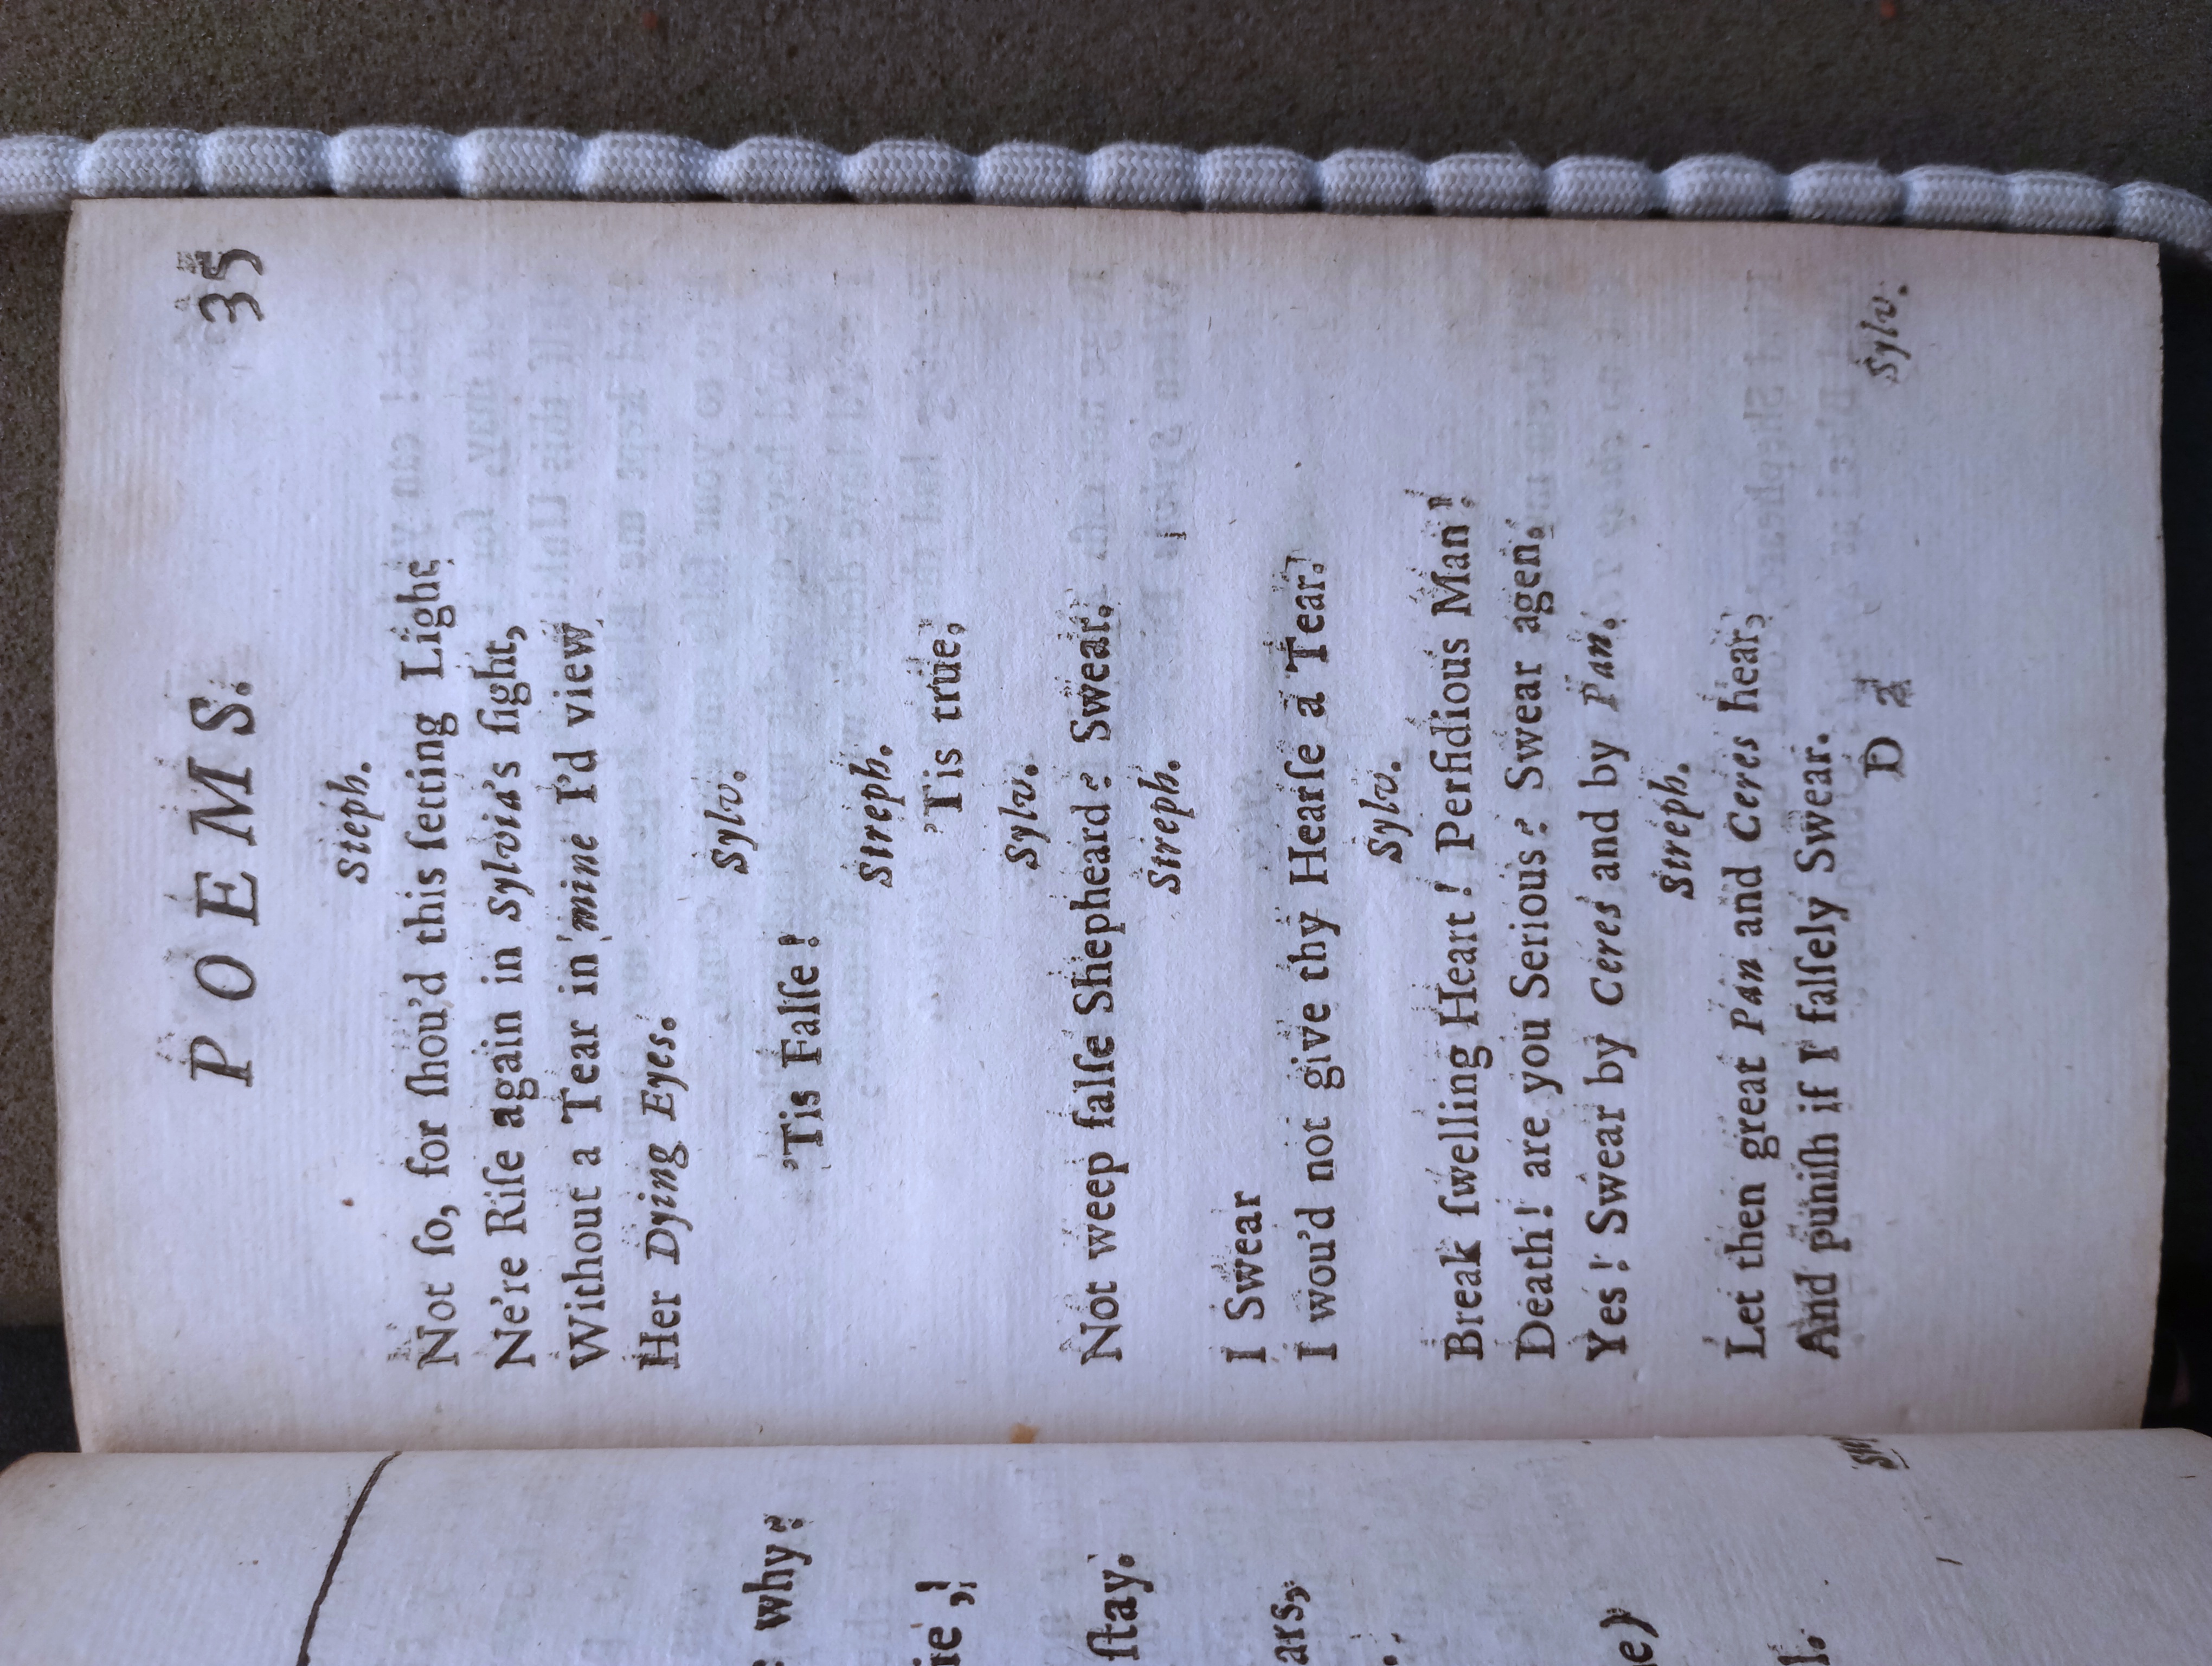 POEMS. 35
Steph.
Not ſo, for ſhou'd this ſetting Light
Ne're Riſe again in Sylvia's ſight,
Without a Tear in mine I'd view
Her Dying Eyes.
Sylv.
'Tis Falſe!
Streph.
'Tis true,
Sylv.
Not weep falſe Shepheard? Swear.
Streph.
I Swear
I wou'd not give thy Hearſe a Tear.
Sylv.
Break ſwelling Heart! Perfidious Man!
Death! are you Serious? Swear agen.
Yes! Swear by Ceres and by Pan.
Streph.
Let then great Pan and Ceres hear,
And puniſh if I falſely Swear.
D 2 Sylv.
why?
ſtay.